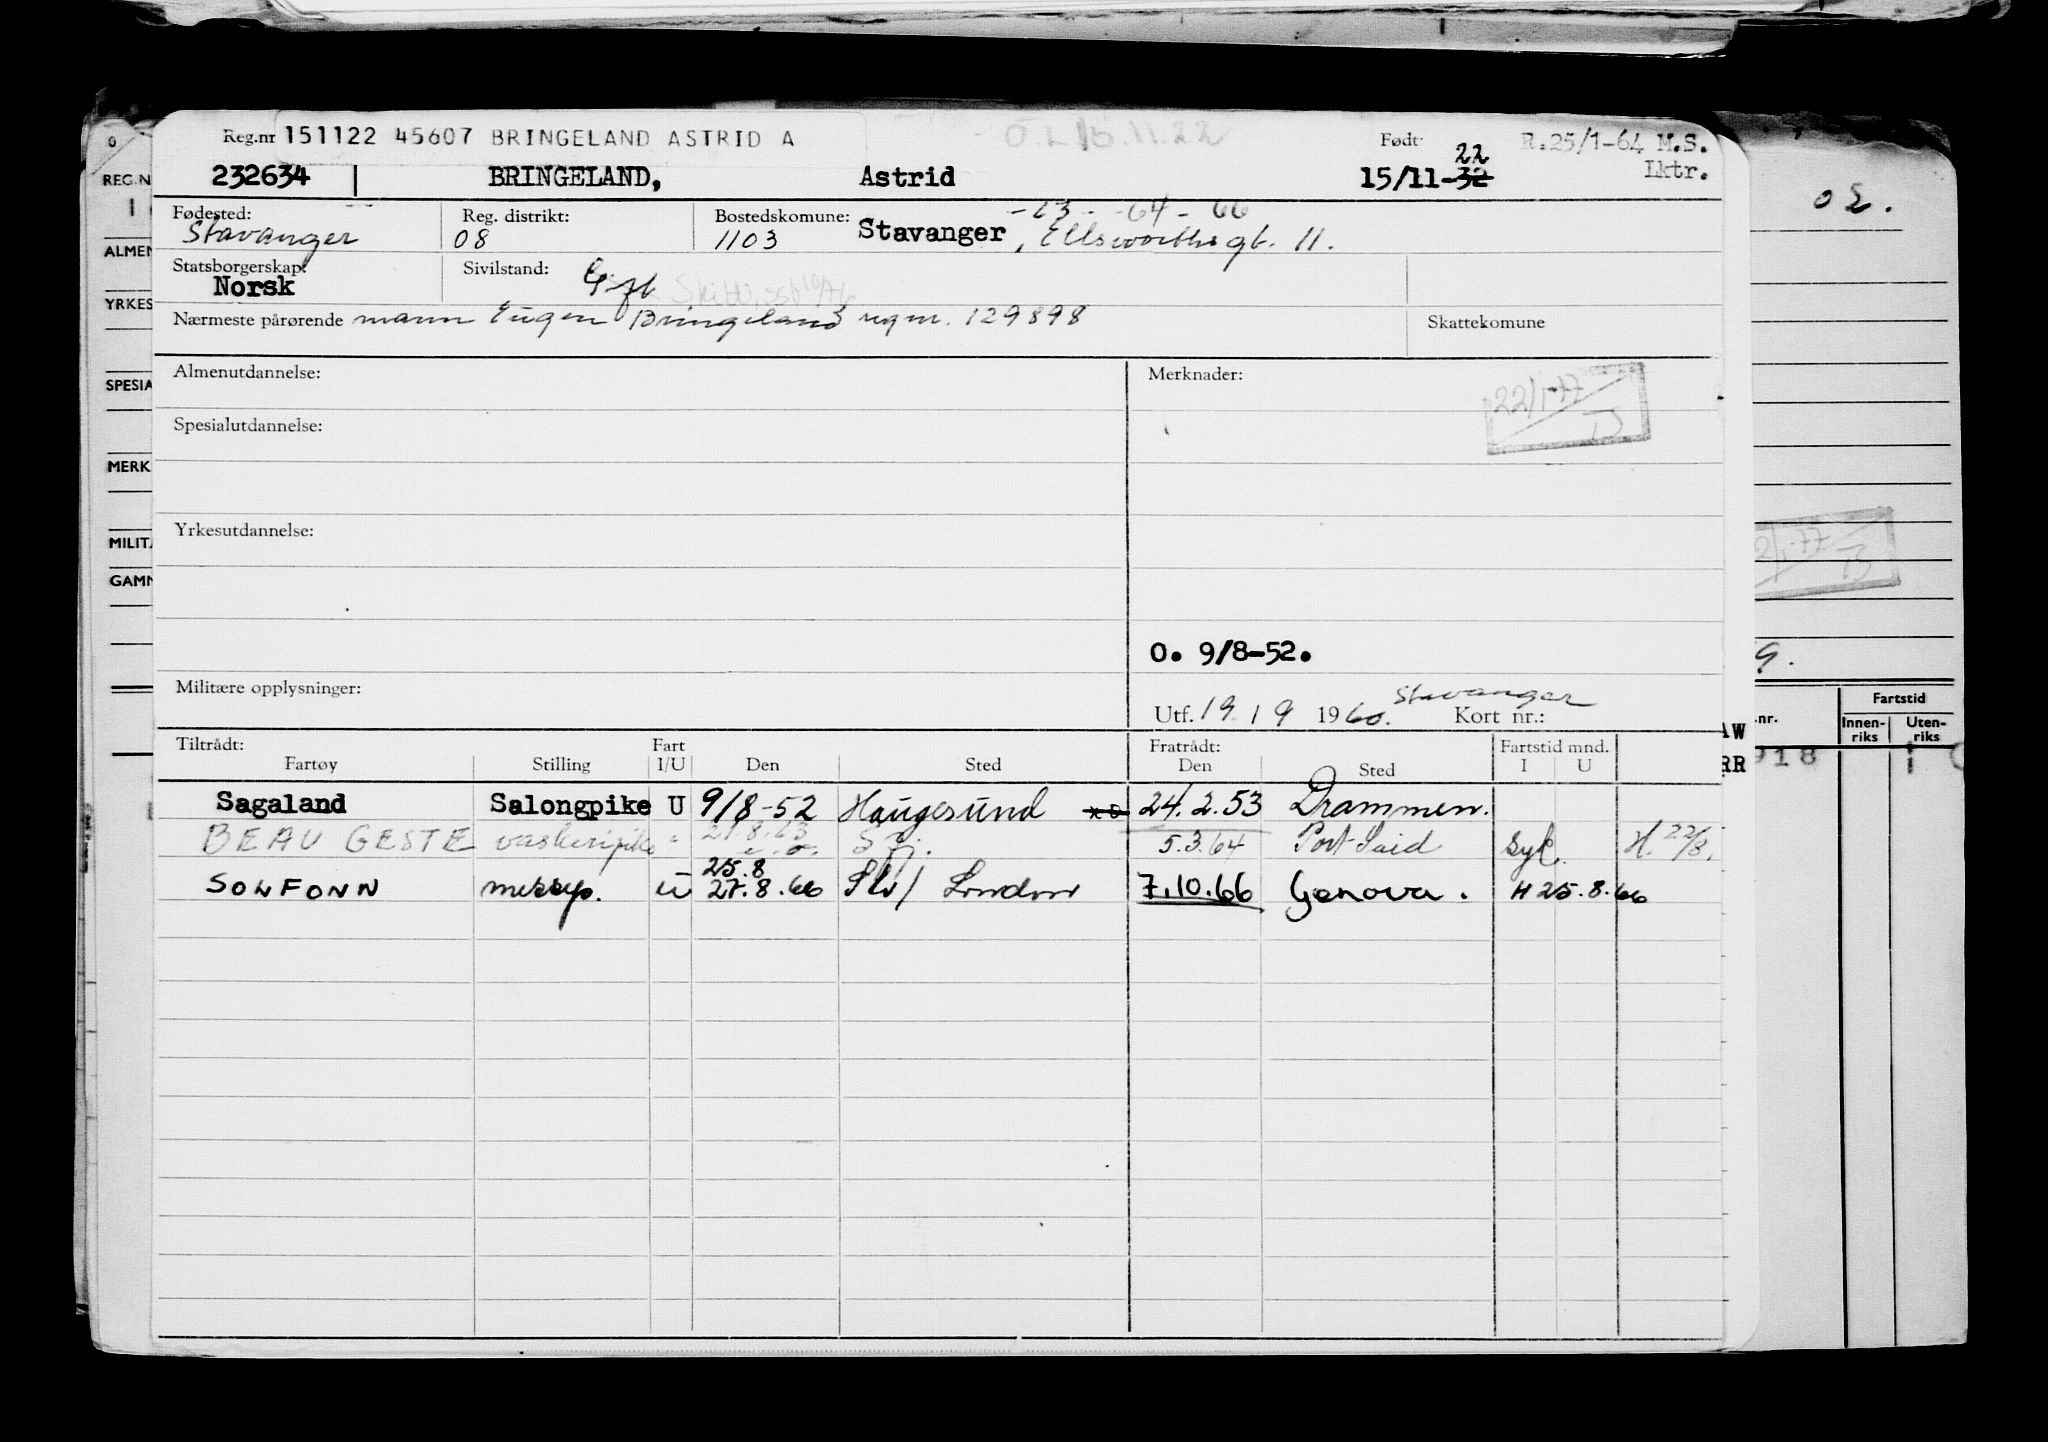 Reg.nr 151122 45607 BRINGELAND ASTRID A O.L 15.11.22 Født R.25/1-64 M.S.
232634 BRINGELAND, Astrid 15/11-32 22 Lktr.
Fødested: Reg. distrikt: Bostedskommune: -63- -64- 66
Stavanger 08 1103 Stavanger, Ellsworths gt. 11.
Statsborgerskap: Sivilstand: Gift
Norsk
Nærmeste pårørende mann Eugen Bringeland regnr. 129898 Skattekomune
Almenutdannelse: Merknader: 22/1-77
Spesialutdannelse:
Yrkesutdannelse:
O. 9/8-52.
Militære opplysninger: Stavanger
Utf. 19/9 1960. Kort nr.:
Tiltrådt: Fart Fratrådt: Fartstid mnd.
Fartøy Stilling I/U Den Sted Den Sted I U
Sagaland Salongpike U 9/8-52 Haugesund 24.2.53 Drammen.
BEAU GESTE vaskeripike " 21.8.63 5.3.64 Port Said Syk H. 22/8.
25.8
SOLFONN messep. U 27.8.66 Slv/ London 7.10.66 Genova. H 25.8.66
REG.N
ALMEN
YRKES
SPESIA
MERK
MILITÆ
GAMM
02.
2/1-77
9.
.nr. Fartstid
Innen-riks Uten-riks
918
AW
RR